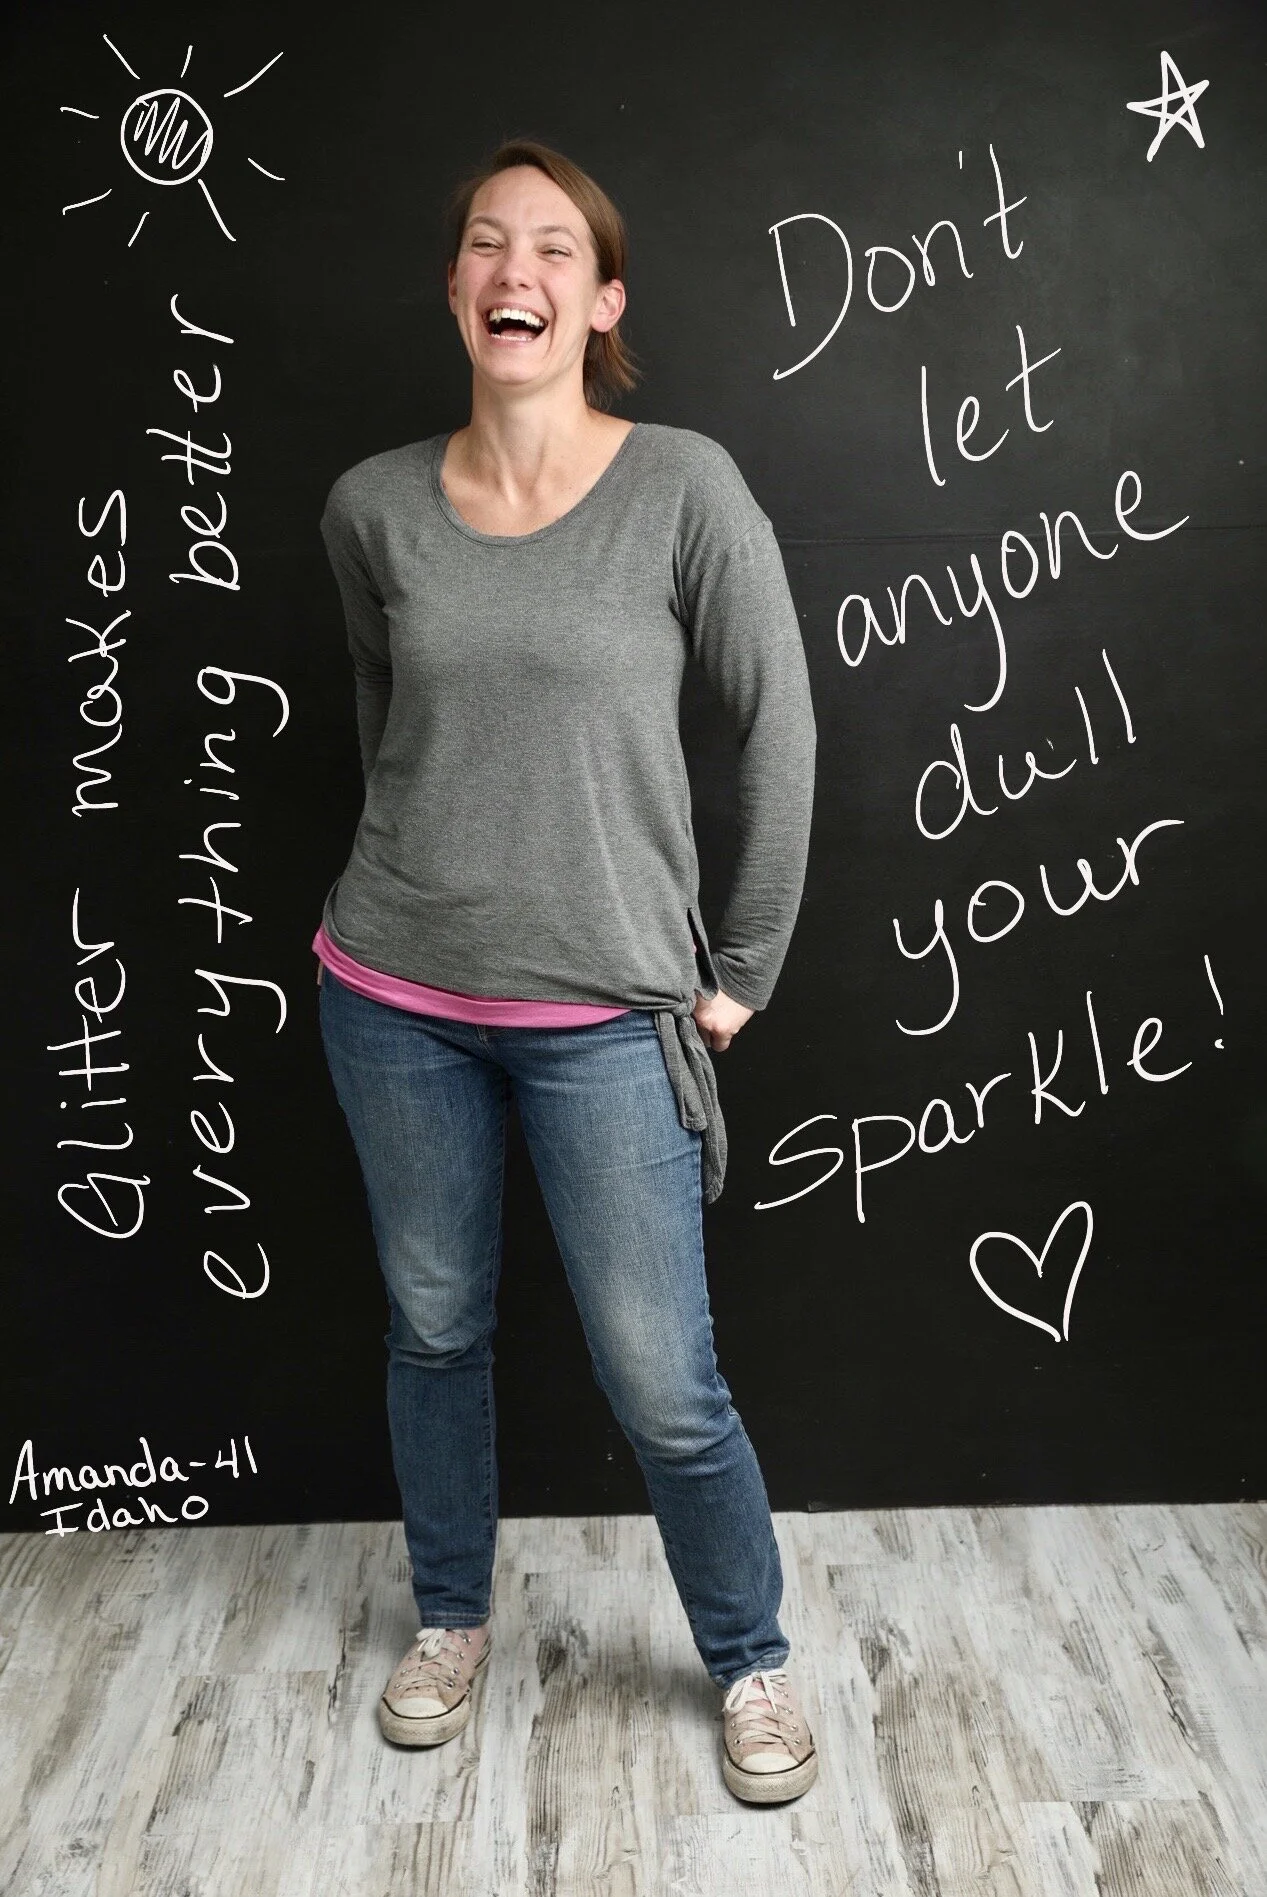 Glitter makes
everything better
Don't
let
anyone
dull
your
sparkle!
Amanda-41
Idaho